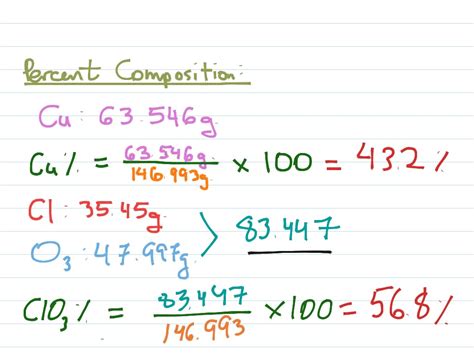 Percent Composition:
Cu: 63.546g
Cu% = 63.546g / 146.993g × 100 = 43.2 %
Cl: 35.45g
83.447
O₃: 47.997g
ClO₃% = 83.447 / 146.993 × 100 = 56.8%